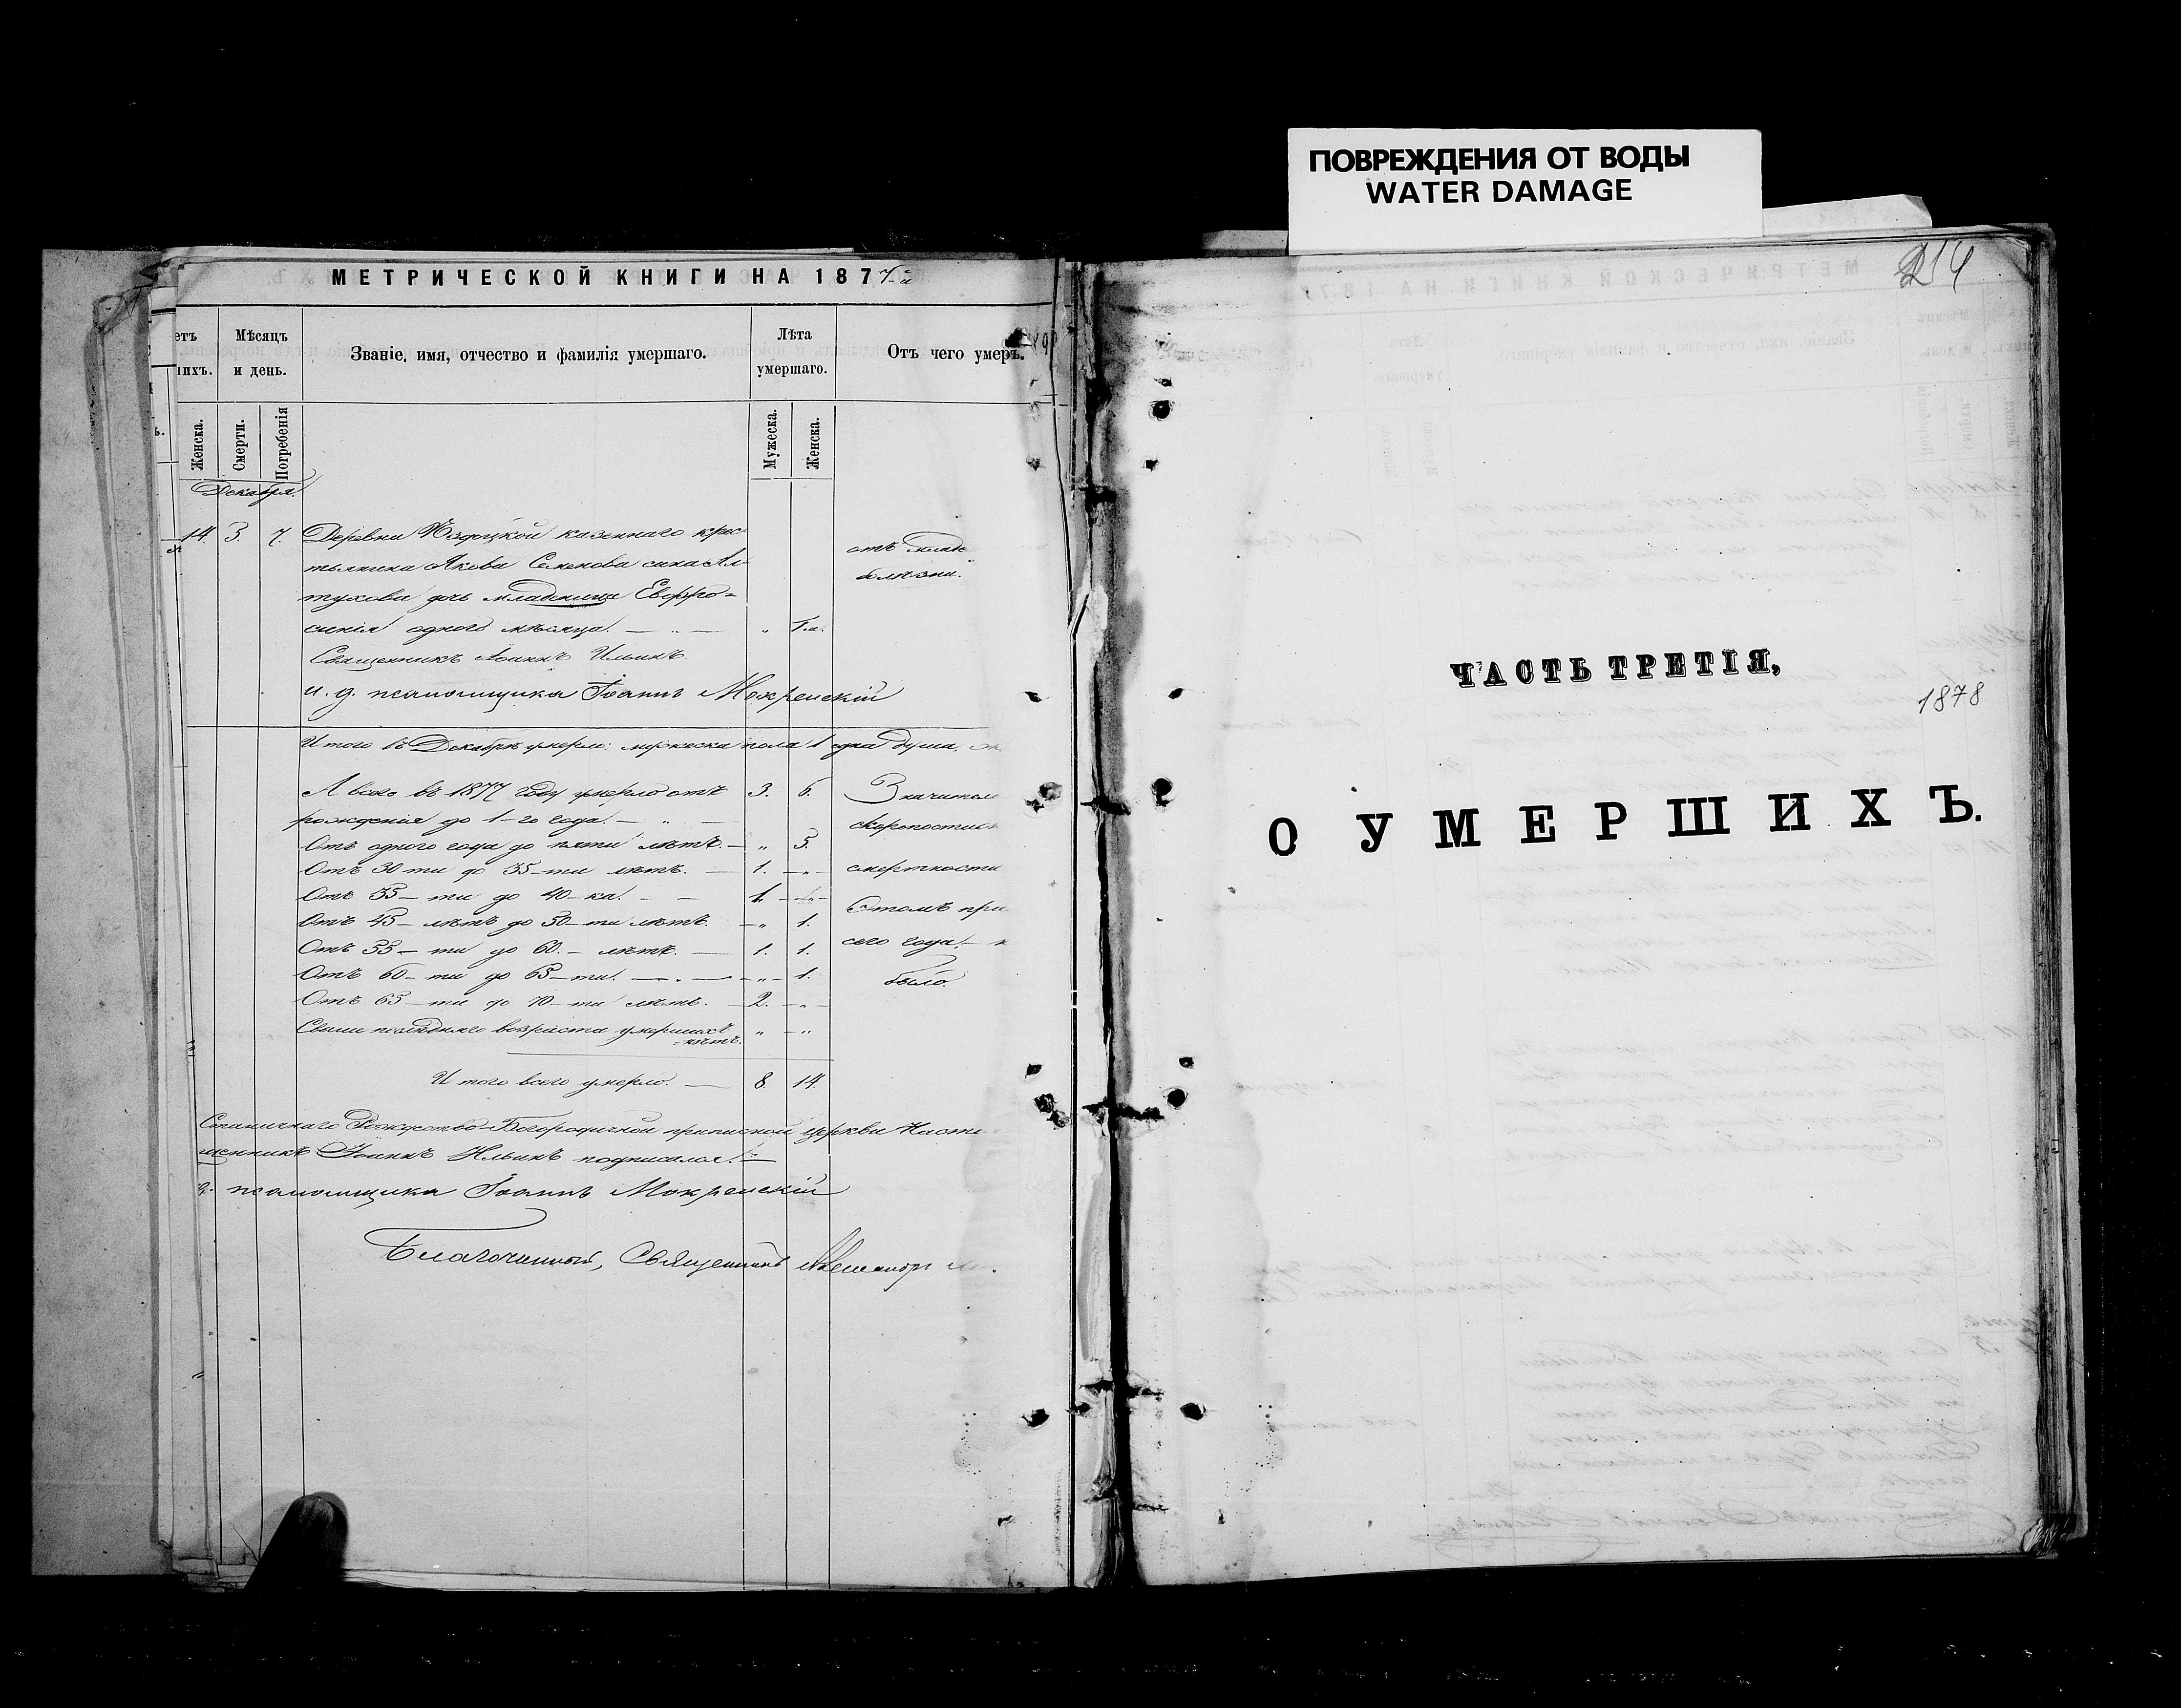 ПОВРЕЖДЕНИЯ ОТ ВОДЫ
WATER DAMAGE
МЕТРИЧЕСКОЙ КНИГИ НА 187
етъ
шихъ.
Мѣсяцъ
и день.
Званіе, имя, отчество и фамилія умершаго.
Лѣта
умершаго.
Отъ чего умеръ.
Женска.
Смерти.
Погребенія
Мужеска.
Женска.
Декабря.
14. 3. 7. Деревни казеннаго крес
тьянина Якова Семенова сына Ал-
тухова дочь младеница Евфро-
синія одного мѣсяца. — „ — „ 1 м.
отъ
болѣзни.
Священникъ Іоаннъ Ильинъ.
и. д. псаломщика Іоаннъ Мокренскій
Итого въ Декабрѣ умерло: мужеска пола 1 одна душа,
А всего въ 1877 году умерло отъ 3. 6.
рожденія до 1-го года. — „ —
Отъ одного года до пяти лѣтъ. — „ 3.
Отъ 30 ти до 35-ти лѣтъ. — 1. — „ —
Отъ 35-ти до 40-ка. — — 1. — „ —
Отъ 45-лѣтъ до 50-ти лѣтъ. — „ 1.
Отъ 55-ти до 60.-лѣтъ. — 1. 1.
Отъ 60-ти до 65-ти. — . — „ — 1.
Отъ 65-ти до 70-ти лѣтъ. — 2. — „ —
Свыше послѣдняго возраста умершихъ „ — „
нѣтъ.
Значител
скоропостиж
смертности
сего года.
было.
Итого всего умерло. — 8. 14.
Рождество-Богородичной приписной церкви Насто
щенникъ Іоаннъ Ильинъ подписался. —
д. псаломщика Іоаннъ Мокренскій
Благочинный, Священникъ Александръ
214
ЧАСТЬ ТРЕТІЯ,
1878
О УМЕРШИХЪ.